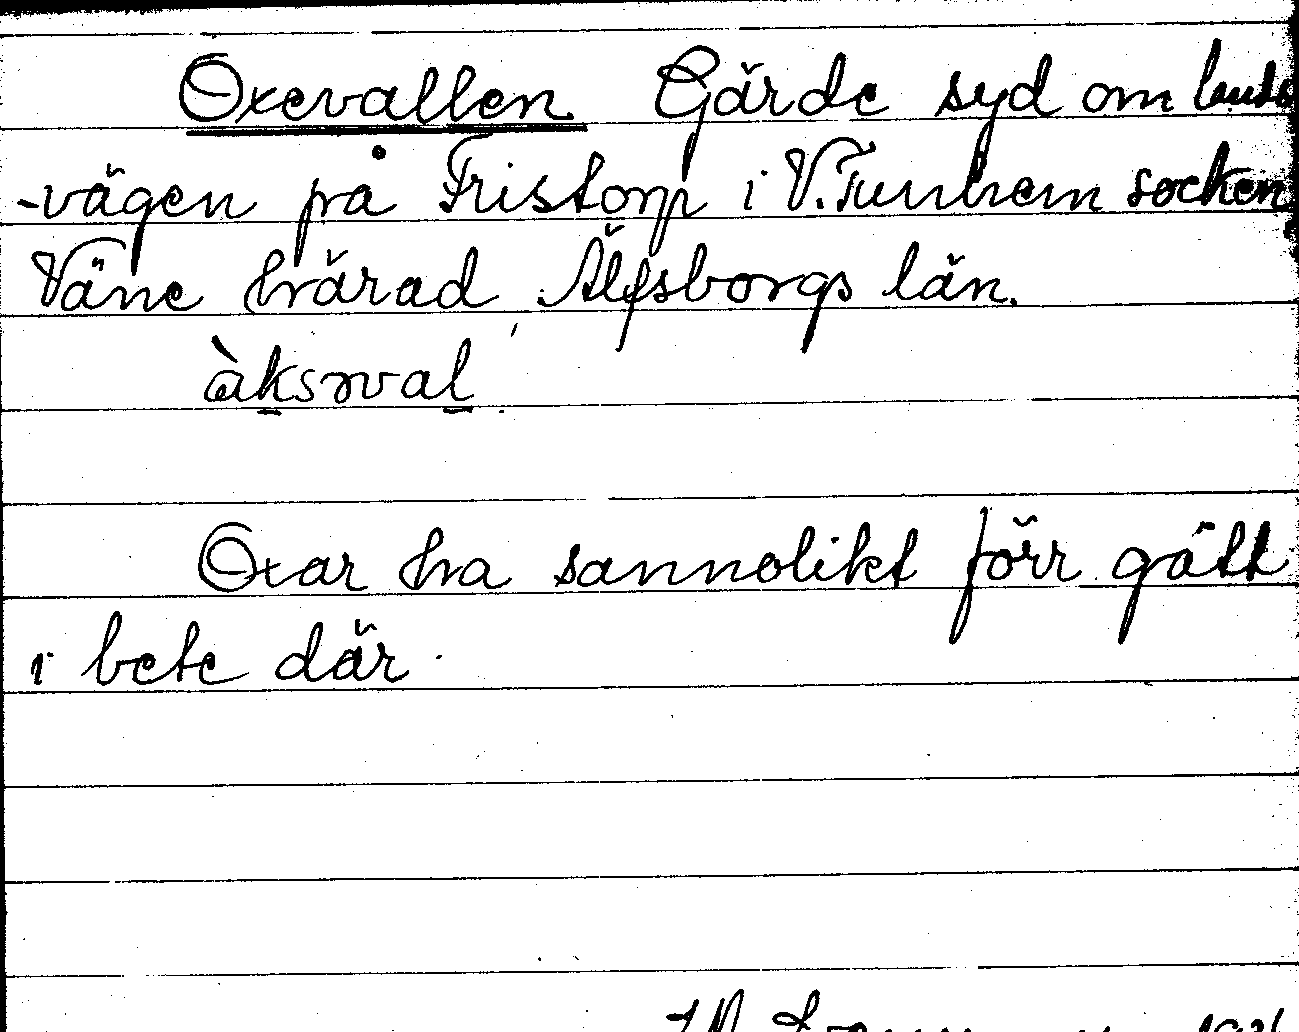 Oxevallen Gärde syd om lands
-vägen på Fristorp i V.Tunhem socken
Väne härad Älfsborgs län.
àksəval
Oxar ha sannolikt förr gått
i bete där.